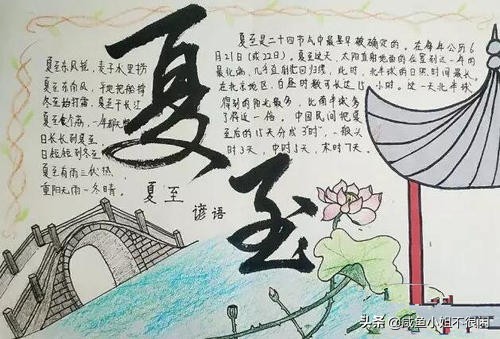 夏至
夏至东风摇，麦子水里捞
夏至东南风，于地把船撑
冬至始打霜，夏至干长江
日长长到夏至
日短短到冬至
夏至有雨三伏热，
重阳无雨一冬晴。
夏至
谚语
夏至是二十四节气中最早被确定的。在每年公历6
月21日(或22日)。夏至这天，太阳直射地面的位置到达一年的
最北端，几乎直射北回归线，此时，北半球的日照时间最长，
在北京地区，白昼时数可长达15小时。这一天北半球
得到的阳光最多，比南半球多
了将近一倍。中国民间把夏
至后的15天分成"3时"，一般头
时3天，中时5天，末时7天。
头条 @咸鱼小姐不很闲